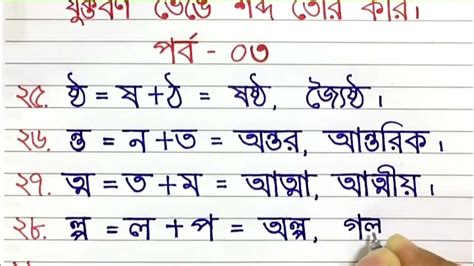 যুক্তবর্ণ ভেঙে শব্দ তৈরি করি।
পর্ব - ০৩
২৫. ষ্ঠ = ষ + ঠ = ষষ্ঠ, জ্যৈষ্ঠ।
২৬. ন্ত = ন + ত = অন্তর, আন্তরিক।
২৭. ত্ম = ত + ম = আত্মা, আত্মীয়।
২৮. ল্প = ল + প = অল্প, গল